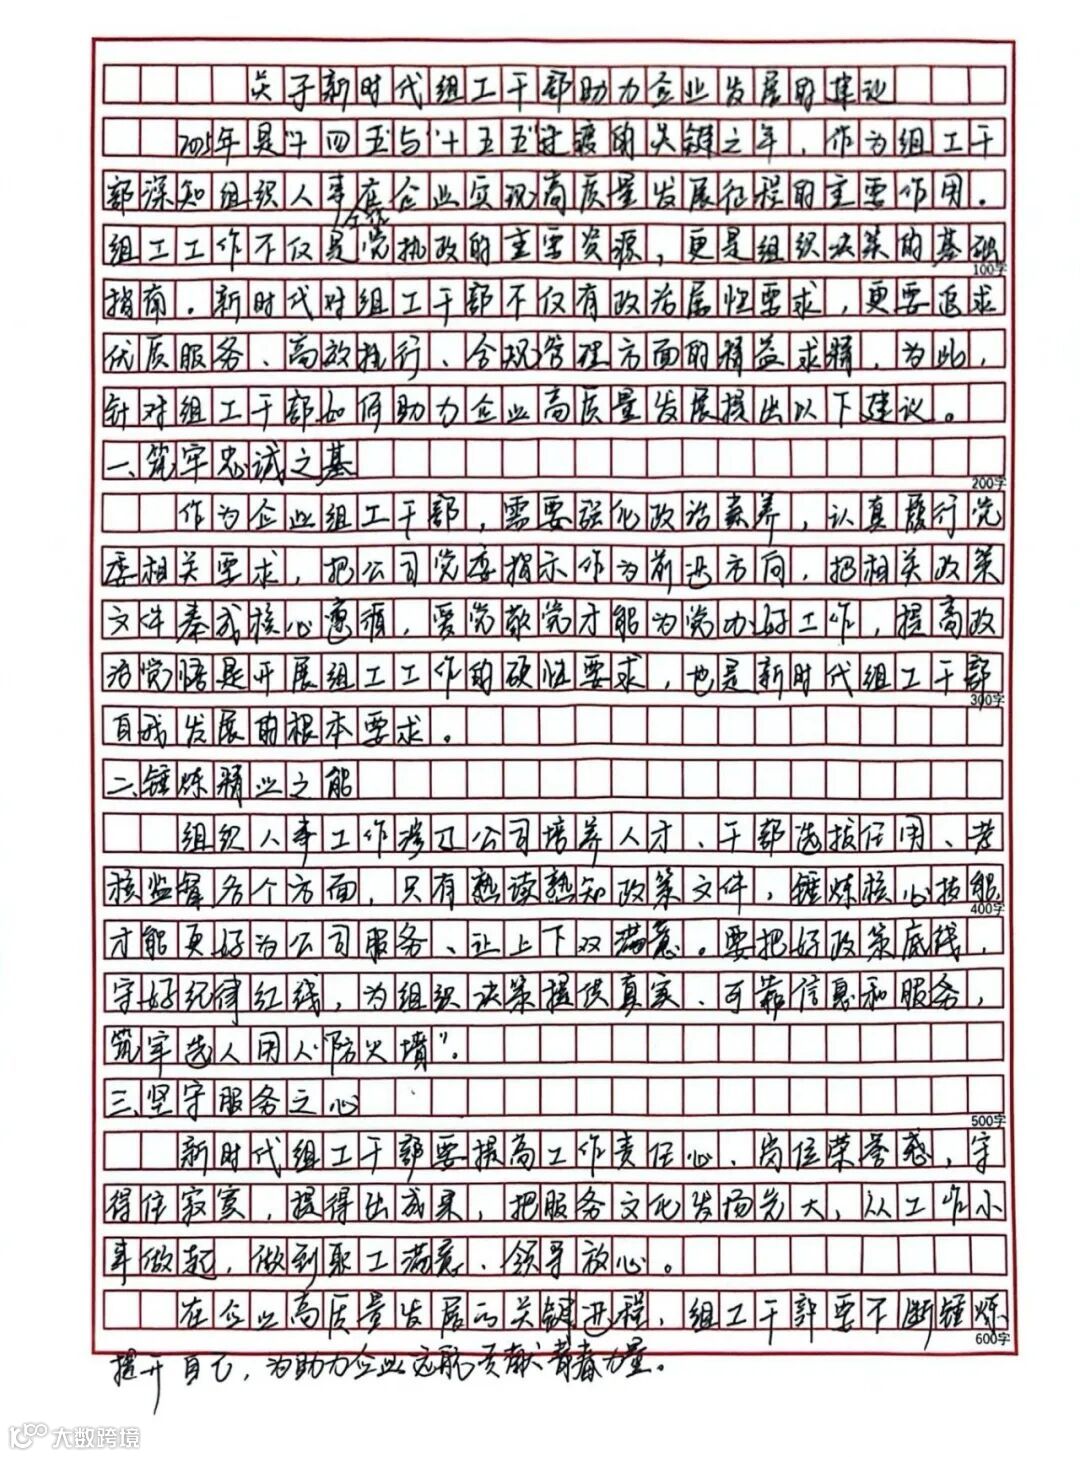 关于新时代组工干部助力企业发展的建议
2025年是“十四五”与“十五五”过渡的关键之年，作为组工干
部深知组织人事在企业实现高质量发展征程的主要作用。
组工工作不仅是党执政的主要资源，更是组织决策的基础
100字
指南。新时代对组工干部不仅有政治属性要求，更要追求
优质服务、高效推行、合规管理方面的精益求精，为此，
针对组工干部如何助力企业高质量发展提出以下建议。
一、筑牢忠诚之基
200字
作为企业组工干部，需要强化政治素养，认真履行党
委相关要求，把公司党委指示作为前进方向，把相关政策
文件奉成核心遵循，爱党敬党才能为党办好工作，提高政
治觉悟是开展组工工作的硬性要求，也是新时代组工干部
300字
自我发展的根本要求。
二、锤炼精业之能
组织人事工作涉及公司培养人才、干部选拔任用、考
核监督各个方面，只有熟读熟知政策文件，锤炼核心技能
400字
才能更好为公司服务、让上下双满意。要把好政策底线，
守好纪律红线，为组织决策提供真实、可靠信息和服务，
筑牢选人用人“防火墙”。
三、坚守服务之心
500字
新时代组工干部要提高工作责任心、岗位荣誉感，守
得住寂寞，提得出成果，把服务文化发扬光大，从工作小
事做起，做到职工满意、领导放心。
在企业高质量发展的关键进程，组工干部要不断锤炼
600字
提升自己，为助力企业远航贡献青春力量。
大数跨境